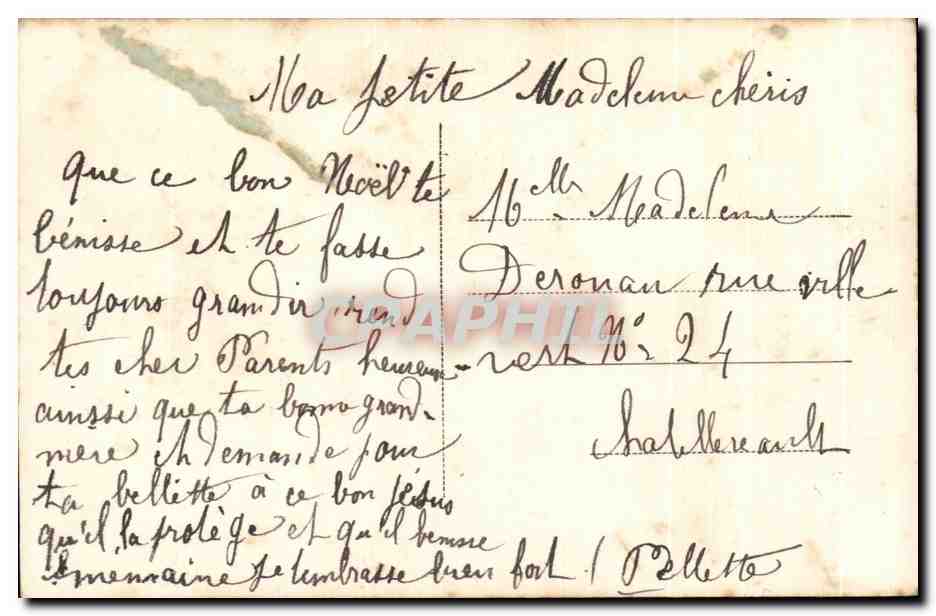 Ma petite Madeleine chéris
que ce bon Noël te
bénisse et te fasse
toujours grandir, rend
tes cher Parents heureux
ainssi que ta bonne grand-
mère et demande pour
ta bellette à ce bon jésus
qu'il la protège et qu'il benisse
je t'embrasse bien fort / Bellette
Melle Madeleine
Deronau rue ville
vert No 24
Chatellereault
CPAPHIL